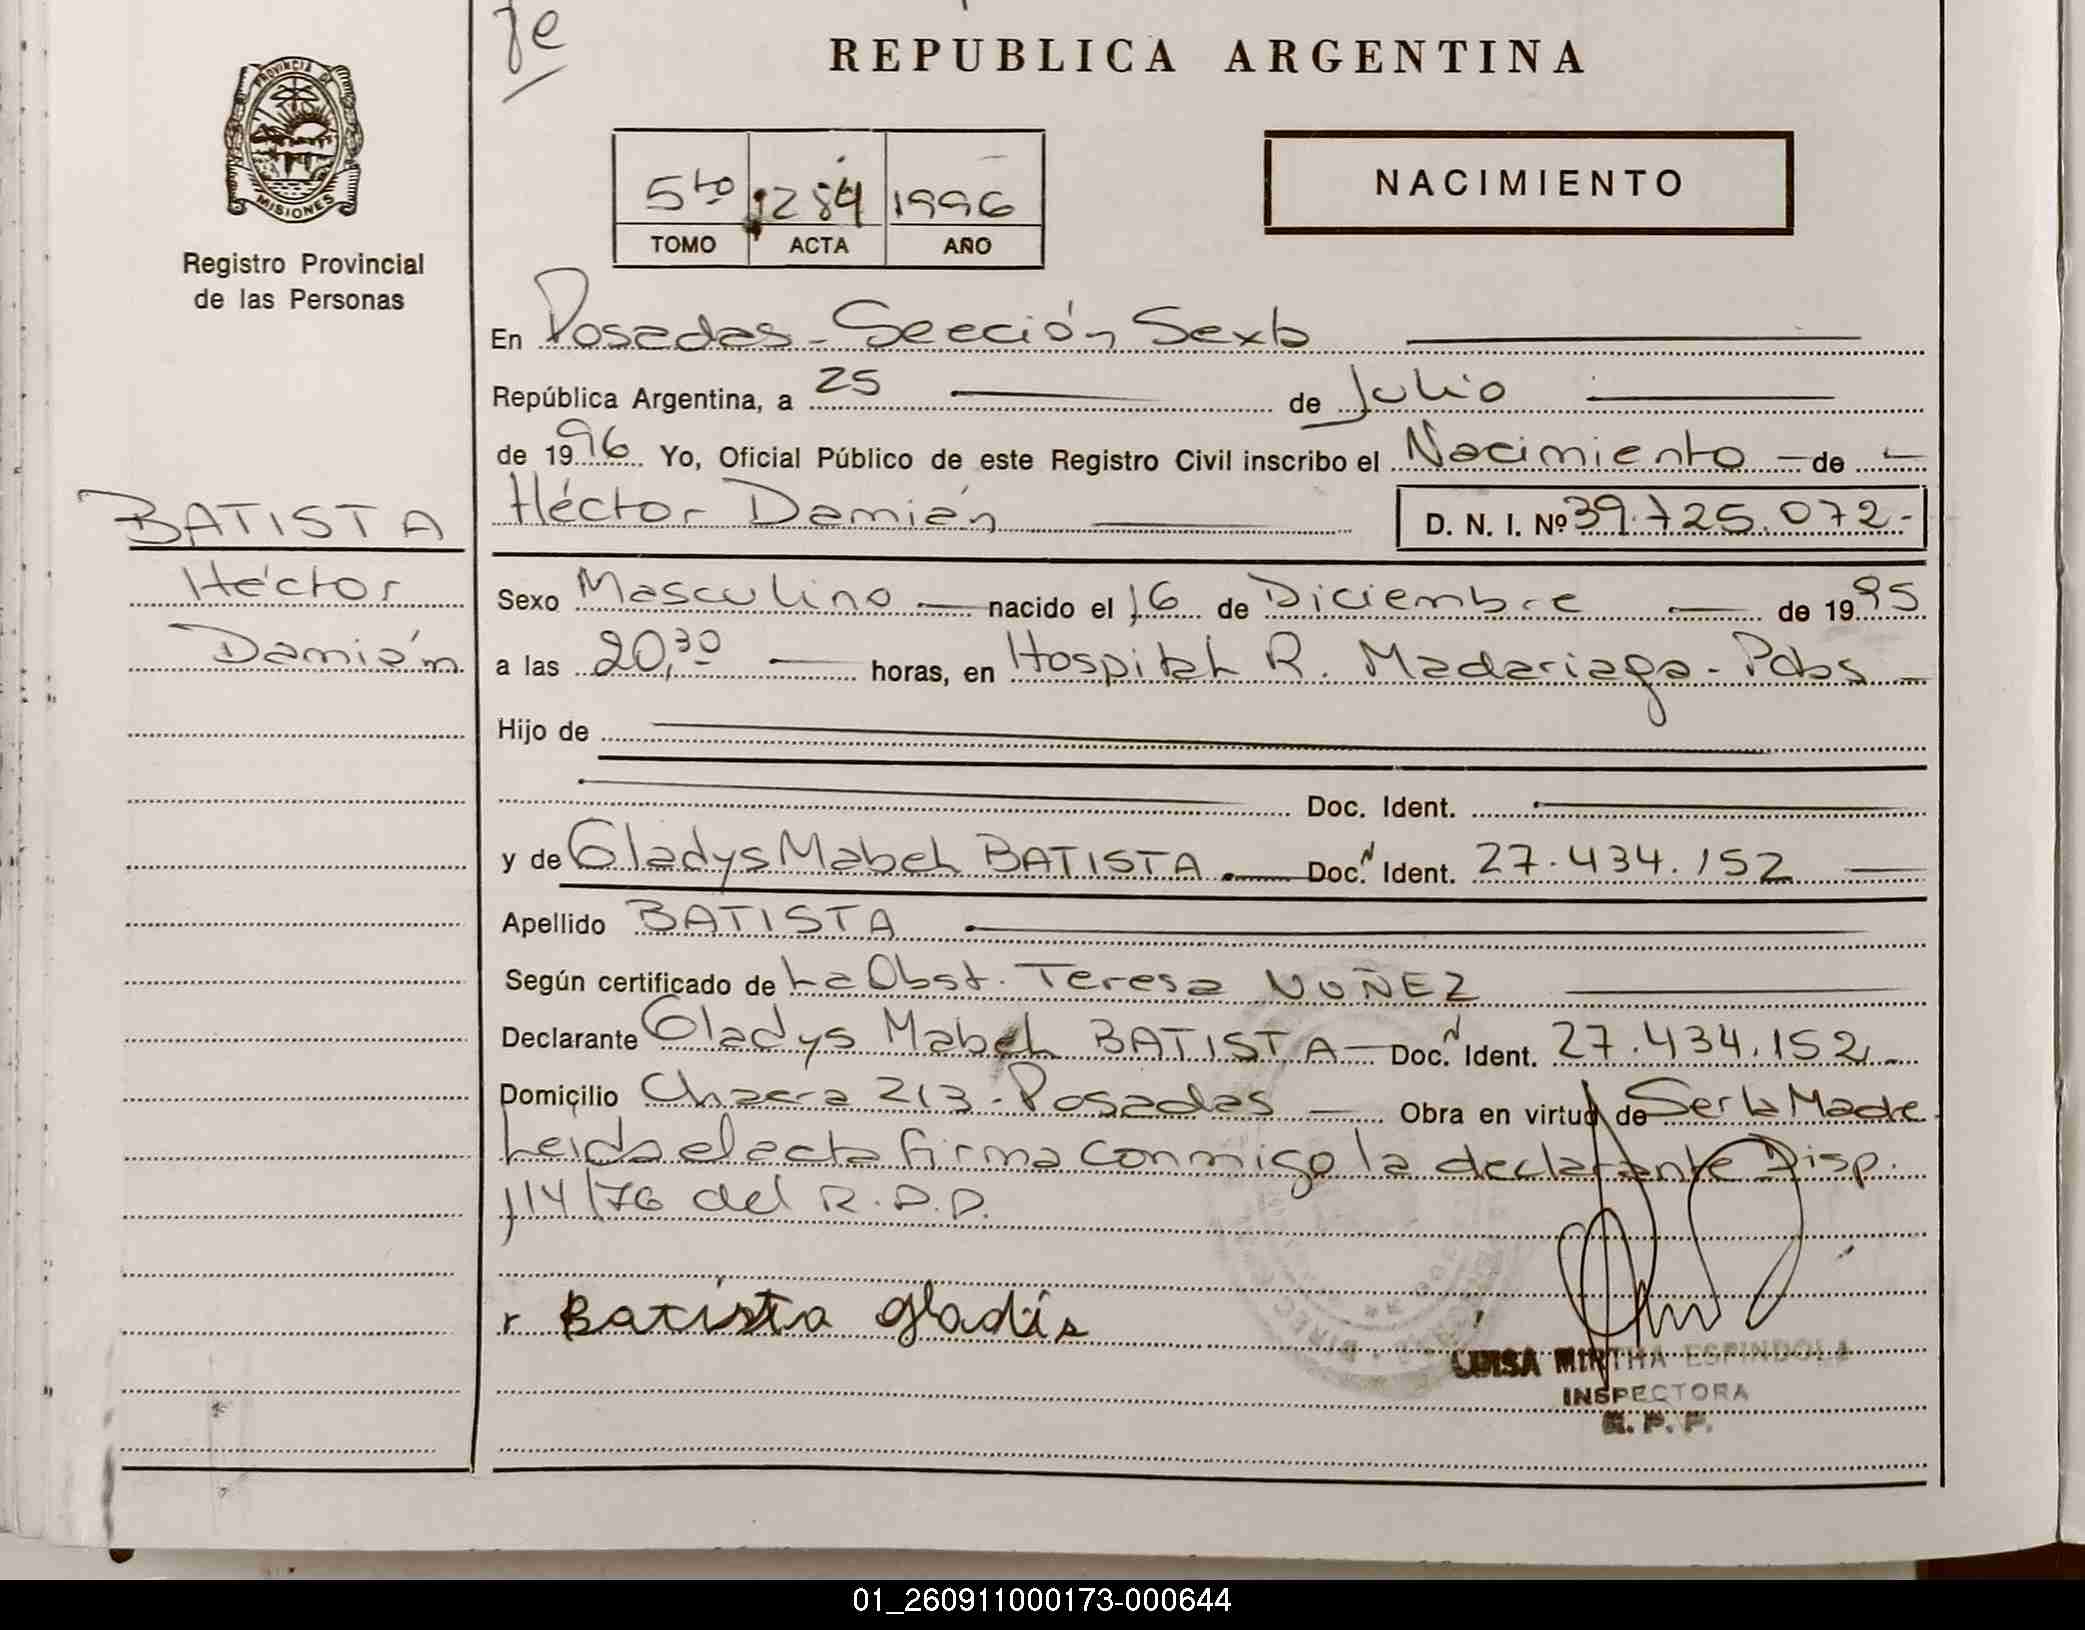 fe
REPUBLICA ARGENTINA
PROVINCIA DE
MISIONES
Registro Provincial
de las Personas
5to 1284 1996
TOMO ACTA AÑO
NACIMIENTO
En Posadas - Sección Sexta
República Argentina, a 25 de Julio
de 1996 Yo, Oficial Público de este Registro Civil inscribo el Nacimiento de
Héctor Damián D. N. I. Nº 39.725.072-
BATISTA
Héctor
Damián
Sexo Masculino nacido el 16 de Diciembre de 1995
a las 20,30 horas, en Hospital R. Madariaga - Pdas
Hijo de
Doc. Ident.
y de Gladys Mabel BATISTA Doc. N Ident. 27.434.152
Apellido BATISTA
Según certificado de La Obst. Teresa NUÑEZ
Declarante Gladys Mabel BATISTA Doc. N Ident. 27.434.152
Domicilio Chacra 213 - Posadas Obra en virtud de Ser la Madre
Leida el acta firma conmigo la declarante Disp.
114/76 del R.P.P.
Batista Gladis
LUISA MIRTHA ESPINDOLA
INSPECTORA
R. P. P.
01_260911000173-000644